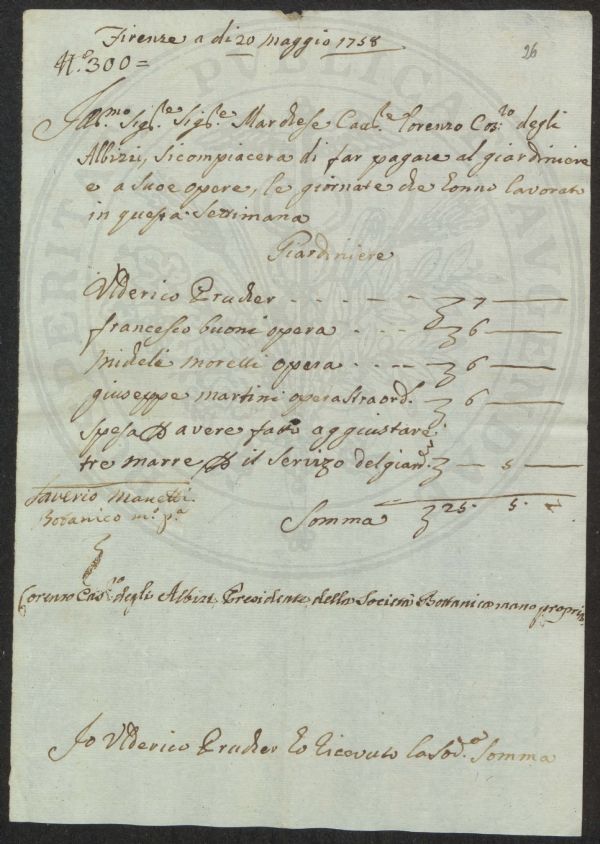 Firenze a di 20 Maggio 1758
26
N.o 300=
Ill.mo Sig.re Sig.re Marchese Cav.re Lorenzo Cos.zo degli
Albizzi, si compiacera di far pagare al giardiniere
e a sue opere, le giornate che honno lavorato
in questa Settimana
Giardiniere
Ulderico Prucher - - - - - 7 —
francesco buoni opera - - - 6 —
michele morelli opera - - - 6 —
giuseppe martini opera straord. - 6 —
spesa p avere fatto aggiustare
tre marre p il servizo del giard.re — 5 —
Saverio Manetti
Botanico m.o p.a
Somma 25. 5. -
Lorenzo Cos.zo degli Albizi Presidente della Società Bottanica mano propria
Io Ulderico Prucher ho ricevuto la sod.a Somma
PUBLICA